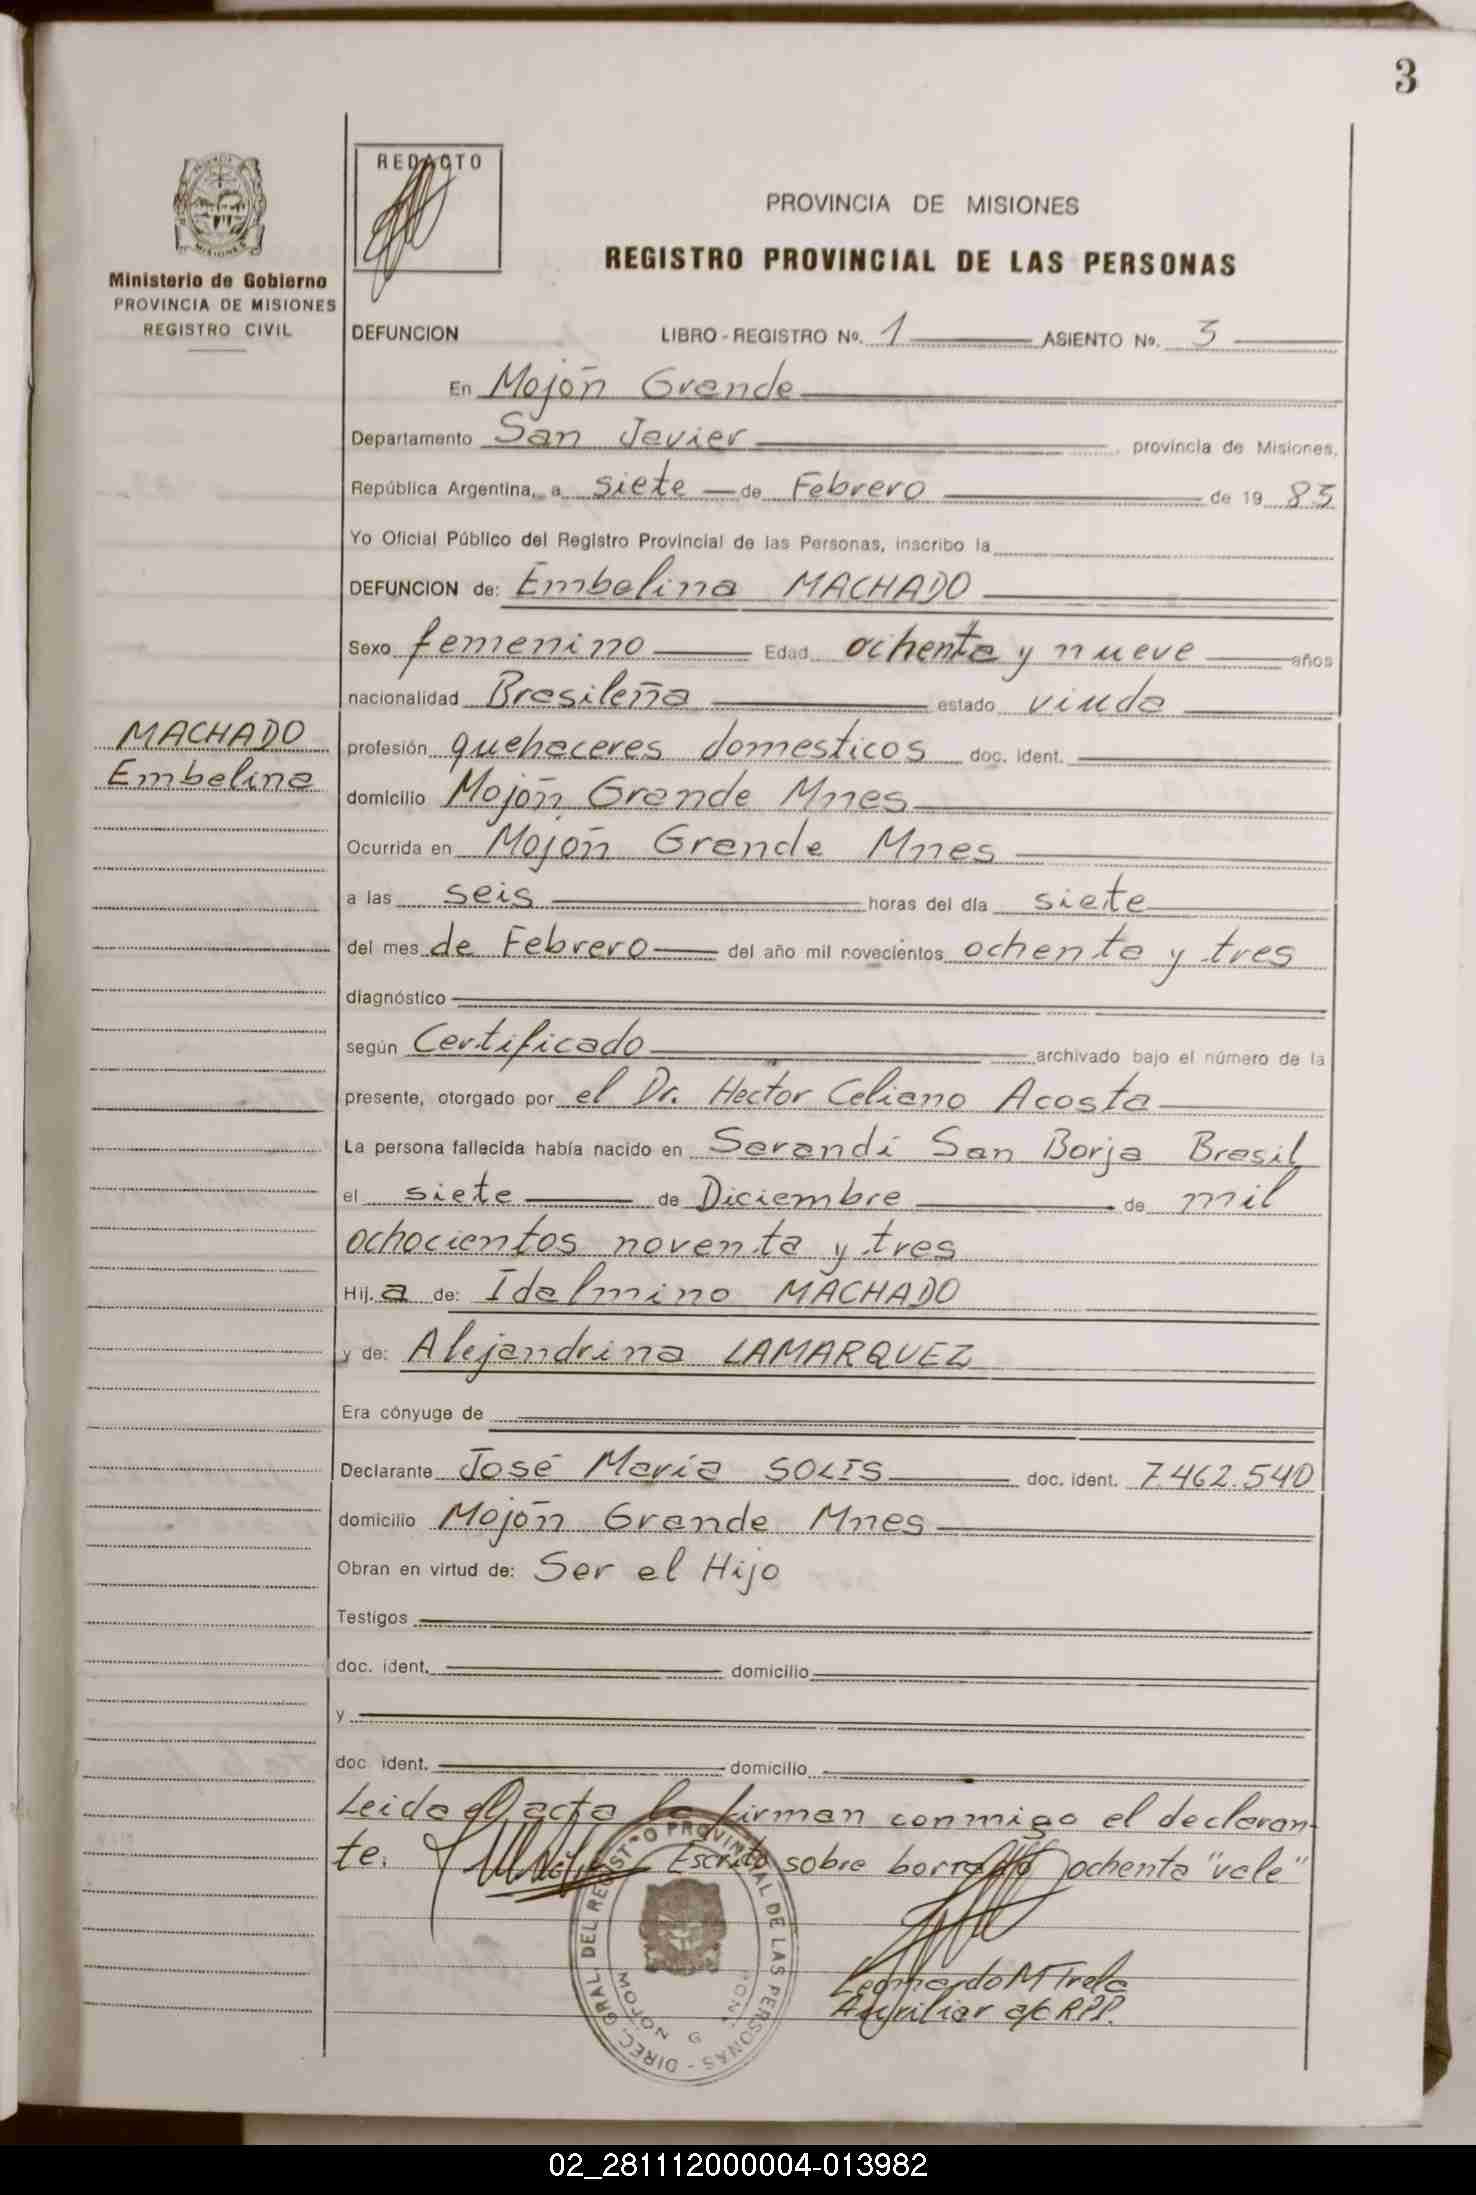 3
REDACTO
PROVINCIA DE MISIONES
REGISTRO PROVINCIAL DE LAS PERSONAS
Ministerio de Gobierno
PROVINCIA DE MISIONES
REGISTRO CIVIL
DEFUNCION LIBRO - REGISTRO Nº. 1 ASIENTO Nº. 3
En Mojón Grande
Departamento San Javier, provincia de Misiones,
República Argentina, a siete de Febrero de 19 83
Yo Oficial Público del Registro Provincial de las Personas, inscribo la
DEFUNCION de: Embelina MACHADO
Sexo femenino Edad ochenta y nueve años
nacionalidad Brasileña estado viuda
MACHADO
Embelina
profesión quehaceres domesticos doc. ident.
domicilio Mojón Grande Mnes
Ocurrida en Mojón Grande Mnes
a las seis horas del día siete
del mes de Febrero del año mil novecientos ochenta y tres
diagnóstico
según Certificado archivado bajo el número de la
presente, otorgado por el Dr. Hector Celiano Acosta
La persona fallecida había nacido en Sarandí San Borja Brasil
el siete de Diciembre de mil
ochocientos noventa y tres
Hij.a de: Idalmino MACHADO
y de: Alejandrina LAMARQUEZ
Era cónyuge de
Declarante José María SOLIS doc. ident. 7.462.540
domicilio Mojón Grande Mnes
Obran en virtud de: Ser el Hijo
Testigos
doc. ident. domicilio
y
doc. ident. domicilio
Leida el acta la firman conmigo el declaran-
te. Escrito sobre borrado ochenta "vale"
DIREC. GRAL. DEL REGISTRO PROVINCIAL DE LAS PERSONAS -
MOJON G
Leonardo M Trela
Auxiliar a/c R.P.P.
02_281112000004-013982